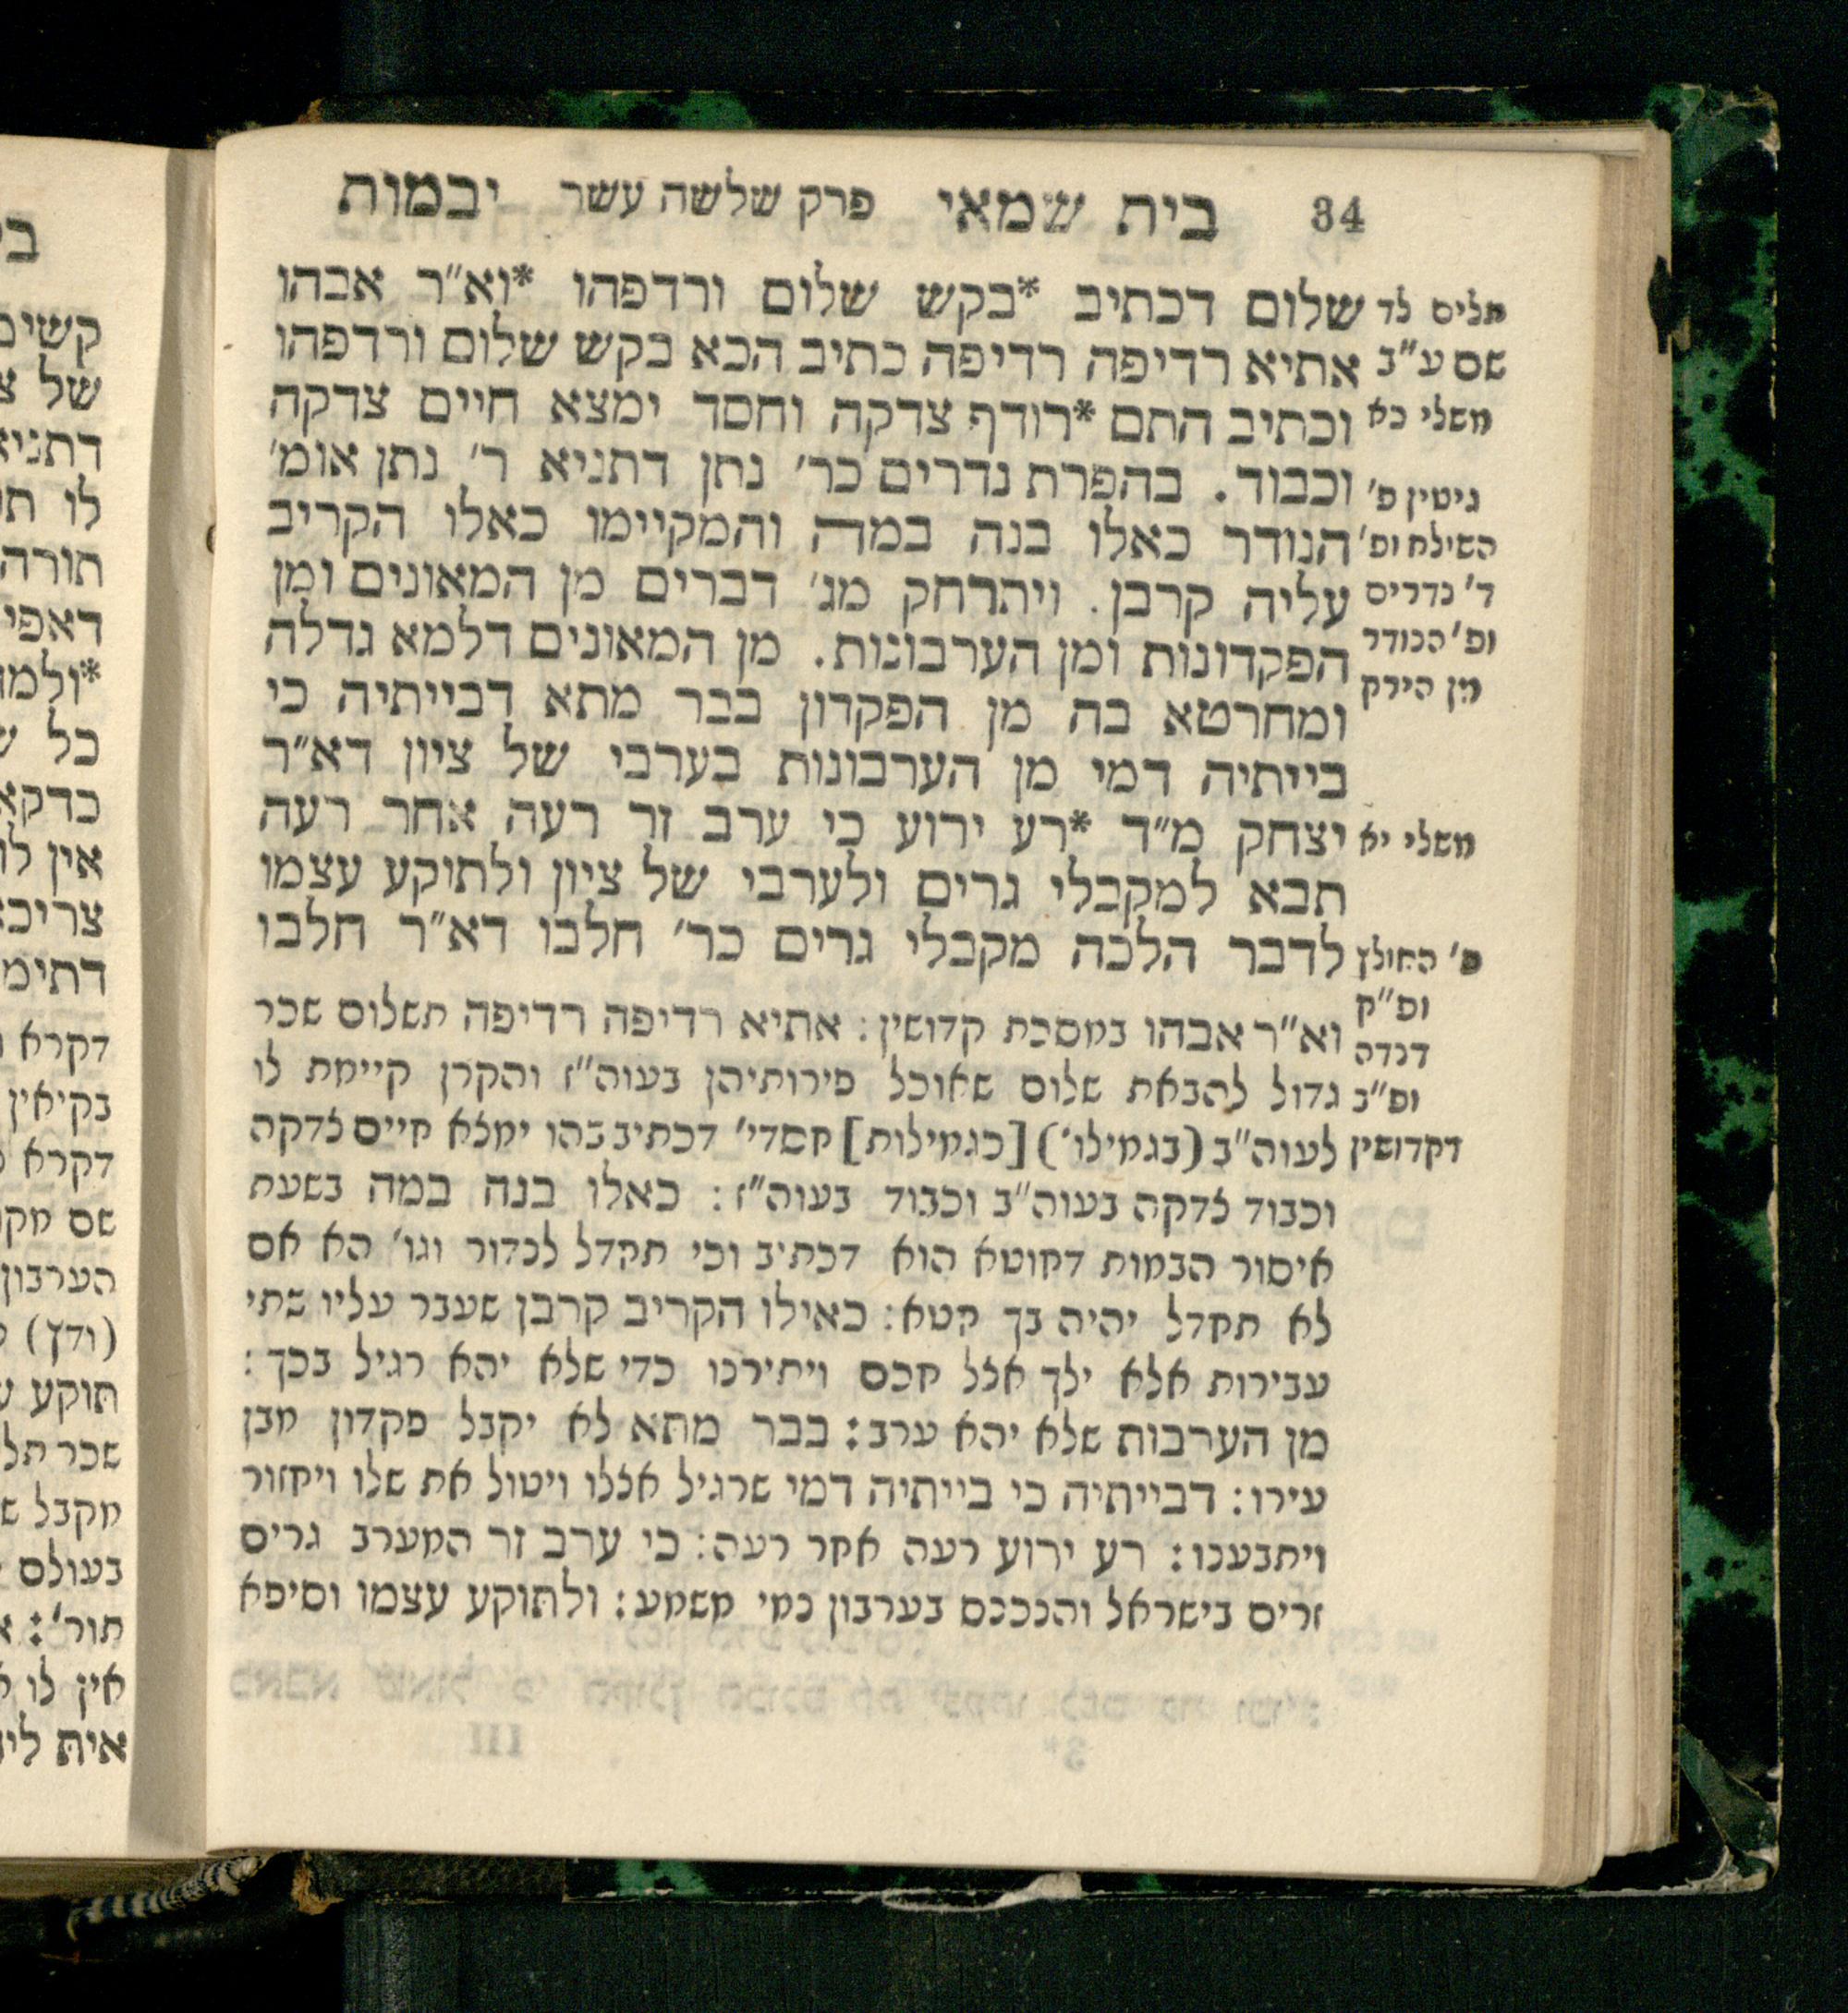 34 בית שמאי פרק שלשה עשר יבמות
תלים לד שלום דכתיב *בקש שלום ורדפהו *וא״ר אבהו
שם ע״ב אתיא רדיפה רדיפה כתיב הכא בקש שלום ורדפהו
משלי כא וכתיב התם *רודף צדקה וחסד ימצא חיים צדקה
גיטין פ׳ וכבוד. בהפרת נדרים כר׳ נתן דתניא ר׳ נתן אומ׳
השולח ופ׳ הנודר כאלו בנה במה והמקיימו כאלו הקריב
ד׳ נדרים עליה קרבן. ויתרחק מג׳ דברים מן המאונים ומן
ופ׳ הנודר הפקדונות ומן הערבונות. מן המאונים דלמא גדלה
מן הירק ומחרטא בה מן הפקדון בבר מתא דבייתיה כי
בייתיה דמי מן הערבונות בערבי של ציון דא״ר
משלי יא יצחק מ״ד *רע ירוע כי ערב זר רעה אחר רעה
תבא למקבלי גרים ולערבי של ציון ולתוקע עצמו
פ׳ החולץ לדבר הלכה מקבלי גרים כר׳ חלבו דא״ר חלבו
ופ״ק
דנדה וא״ר אבהו במסכת קדושין: אתיא רדיפה רדיפה תשלום שכר
ופ״ב גדול להבאת שלום שאוכל פירותיהן בעוה״ז והקרן קיימת לו
דקדושין לעוה״ב (בגמילו׳) [כגמילות] חסדי׳ דכתיב בהו ימצא חיים צדקה
וכבוד צדקה בעוה״ב וכבוד בעוה״ז: כאלו בנה במה בשעת
איסור הבמות דחוטא הוא דכתיב וכי תחדל לנדור וגו׳ הא אם
לא תחדל יהיה בך חטא: כאילו הקריב קרבן שעבר עליו שתי
עבירות אלא ילך אצל חכם ויתירנו כדי שלא יהא רגיל בכך:
מן הערבות שלא יהא ערב: בבר מתא לא יקבל פקדון מבן
עירו: דבייתיה כי בייתיה דמי שרגיל אצלו ויטול את שלו ויחזור
ויתבענו: רע ירוע רעה אחר רעה: כי ערב זר המערב גרים
זרים בישראל והנכנס בערבון נמי משמע: ולתוקע עצמו וסיפא